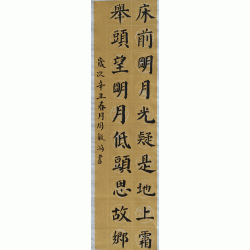 床前明月光疑是地上霜
舉頭望明月低頭思故鄉
歲次辛丑春月周敏